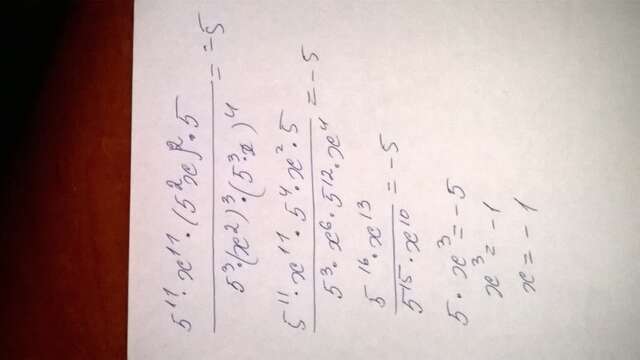 5¹¹ · x¹¹ · (5²x)² · 5
5³ · (x²)³ · (5³ · x)⁴ = -5
5¹¹ · x¹¹ · 5⁴ · x² · 5
5³ · x⁶ · 5¹² · x⁴ = -5
5¹⁶ · x¹³
5¹⁵ · x¹⁰ = -5
5 · x³ = -5
x³ = -1
x = -1